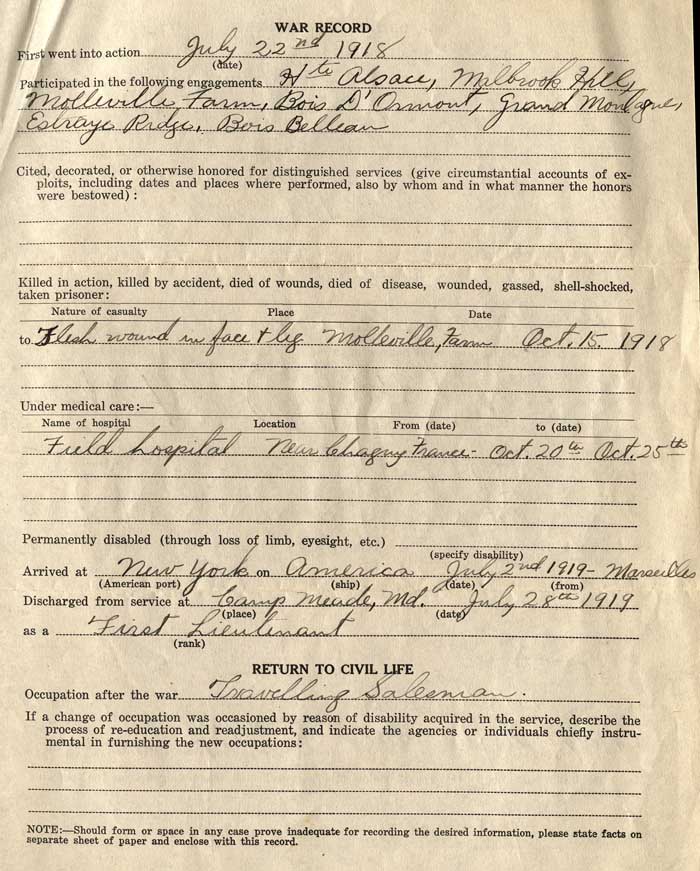 WAR RECORD
First went into action July 22nd 1918
(date)
Participated in the following engagements Hte Alsace, Malbrook Hill,
Molleville Farm, Bois D'Ormont, Grand Montagne,
Estraye Ridge, Bois Belleau
Cited, decorated, or otherwise honored for distinguished services (give circumstantial accounts of ex-
ploits, including dates and places where performed, also by whom and in what manner the honors
were bestowed) :
Killed in action, killed by accident, died of wounds, died of disease, wounded, gassed, shell-shocked,
taken prisoner:
Nature of casualty Place Date
to Flesh wound in face + leg Molleville, Farm Oct. 15. 1918
Under medical care:—
Name of hospital Location From (date) to (date)
Field hospital Near Chagny France - Oct. 20th Oct. 25th
Permanently disabled (through loss of limb, eyesight, etc.)
(specify disability)
Arrived at New York on America July 2nd 1919 - Marseilles
(American port) (ship) (date) (from)
Discharged from service at Camp Meade, Md. July 28th 1919
(place) (date)
as a First Lieutenant
(rank)
RETURN TO CIVIL LIFE
Occupation after the war Travelling Salesman.
If a change of occupation was occasioned by reason of disability acquired in the service, describe the
process of re-education and readjustment, and indicate the agencies or individuals chiefly instru-
mental in furnishing the new occupations:
NOTE:—Should form or space in any case prove inadequate for recording the desired information, please state facts on
separate sheet of paper and enclose with this record.